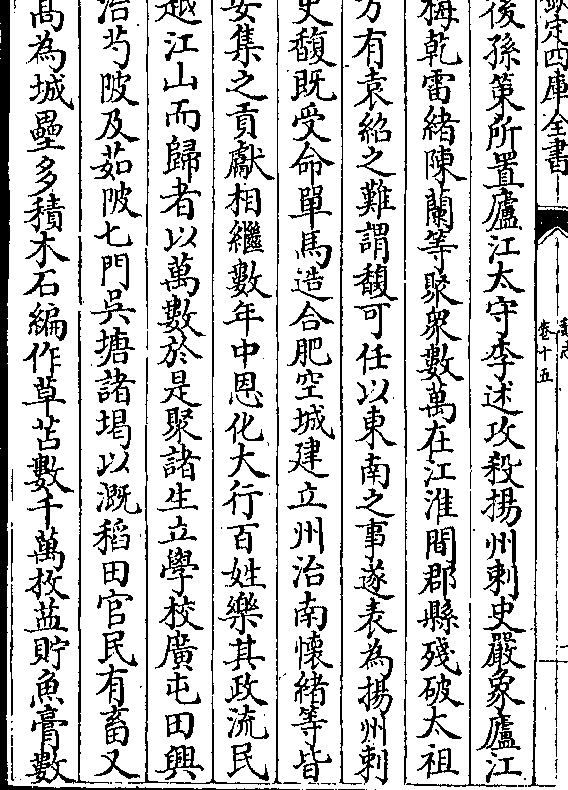 欽定四庫全書
魏志
卷十五
後孫策所置廬江太守李述攻殺揚州刺史嚴象廬江
梅乾雷緒陳蘭等聚衆數萬在江淮間郡縣殘破太祖
方有袁紹之難謂馥可任以東南之事遂表為揚州刺
史馥既受命單馬造合肥空城建立州治南懷緒等皆
安集之貢獻相繼數年中恩化大行百姓樂其政流民
越江山而歸者以萬數於是聚諸生立學校廣屯田興
治芍陂及茹陂七門吳塘諸堨以溉稻田官民有畜又
高為城壘多積木石編作草苫數千萬枚益貯魚膏數